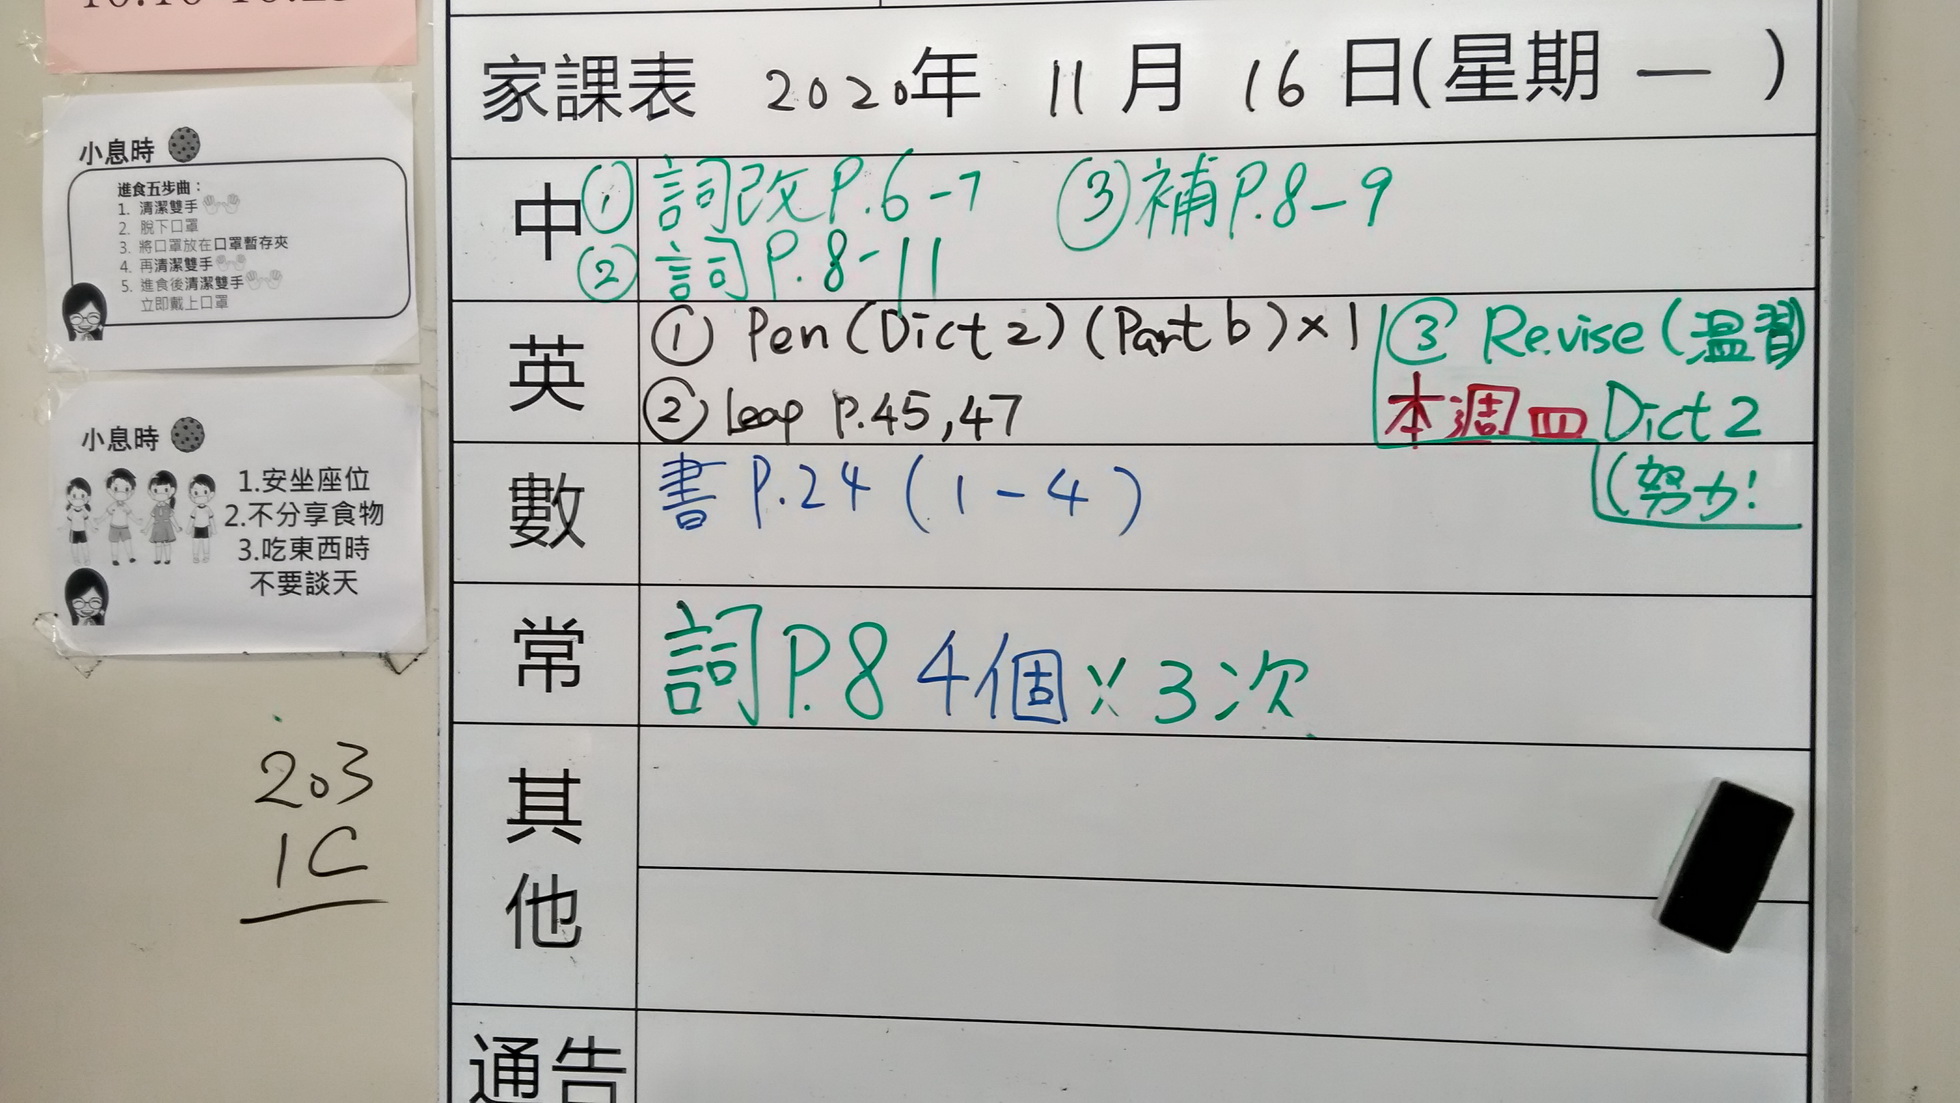 小息時
進食五步曲：
1. 清潔雙手
2. 脫下口罩
3. 將口罩放在口罩暫存夾
4. 再清潔雙手
5. 進食後清潔雙手
立即戴上口罩
小息時
1.安坐座位
2.不分享食物
3.吃東西時
不要談天
203
1C
家課表 2020年 11月 16日(星期一)
中
① 詞改P.6-7 ③補P.8-9
② 詞P.8-11
英
① Pen (Dict 2) (Part b) ×1
② Leap P.45,47
③ Revise (溫習)
本週四 Dict 2
(努力!
數
書 P.24 (1-4)
常
詞P.8 4個×3次
其他
通告